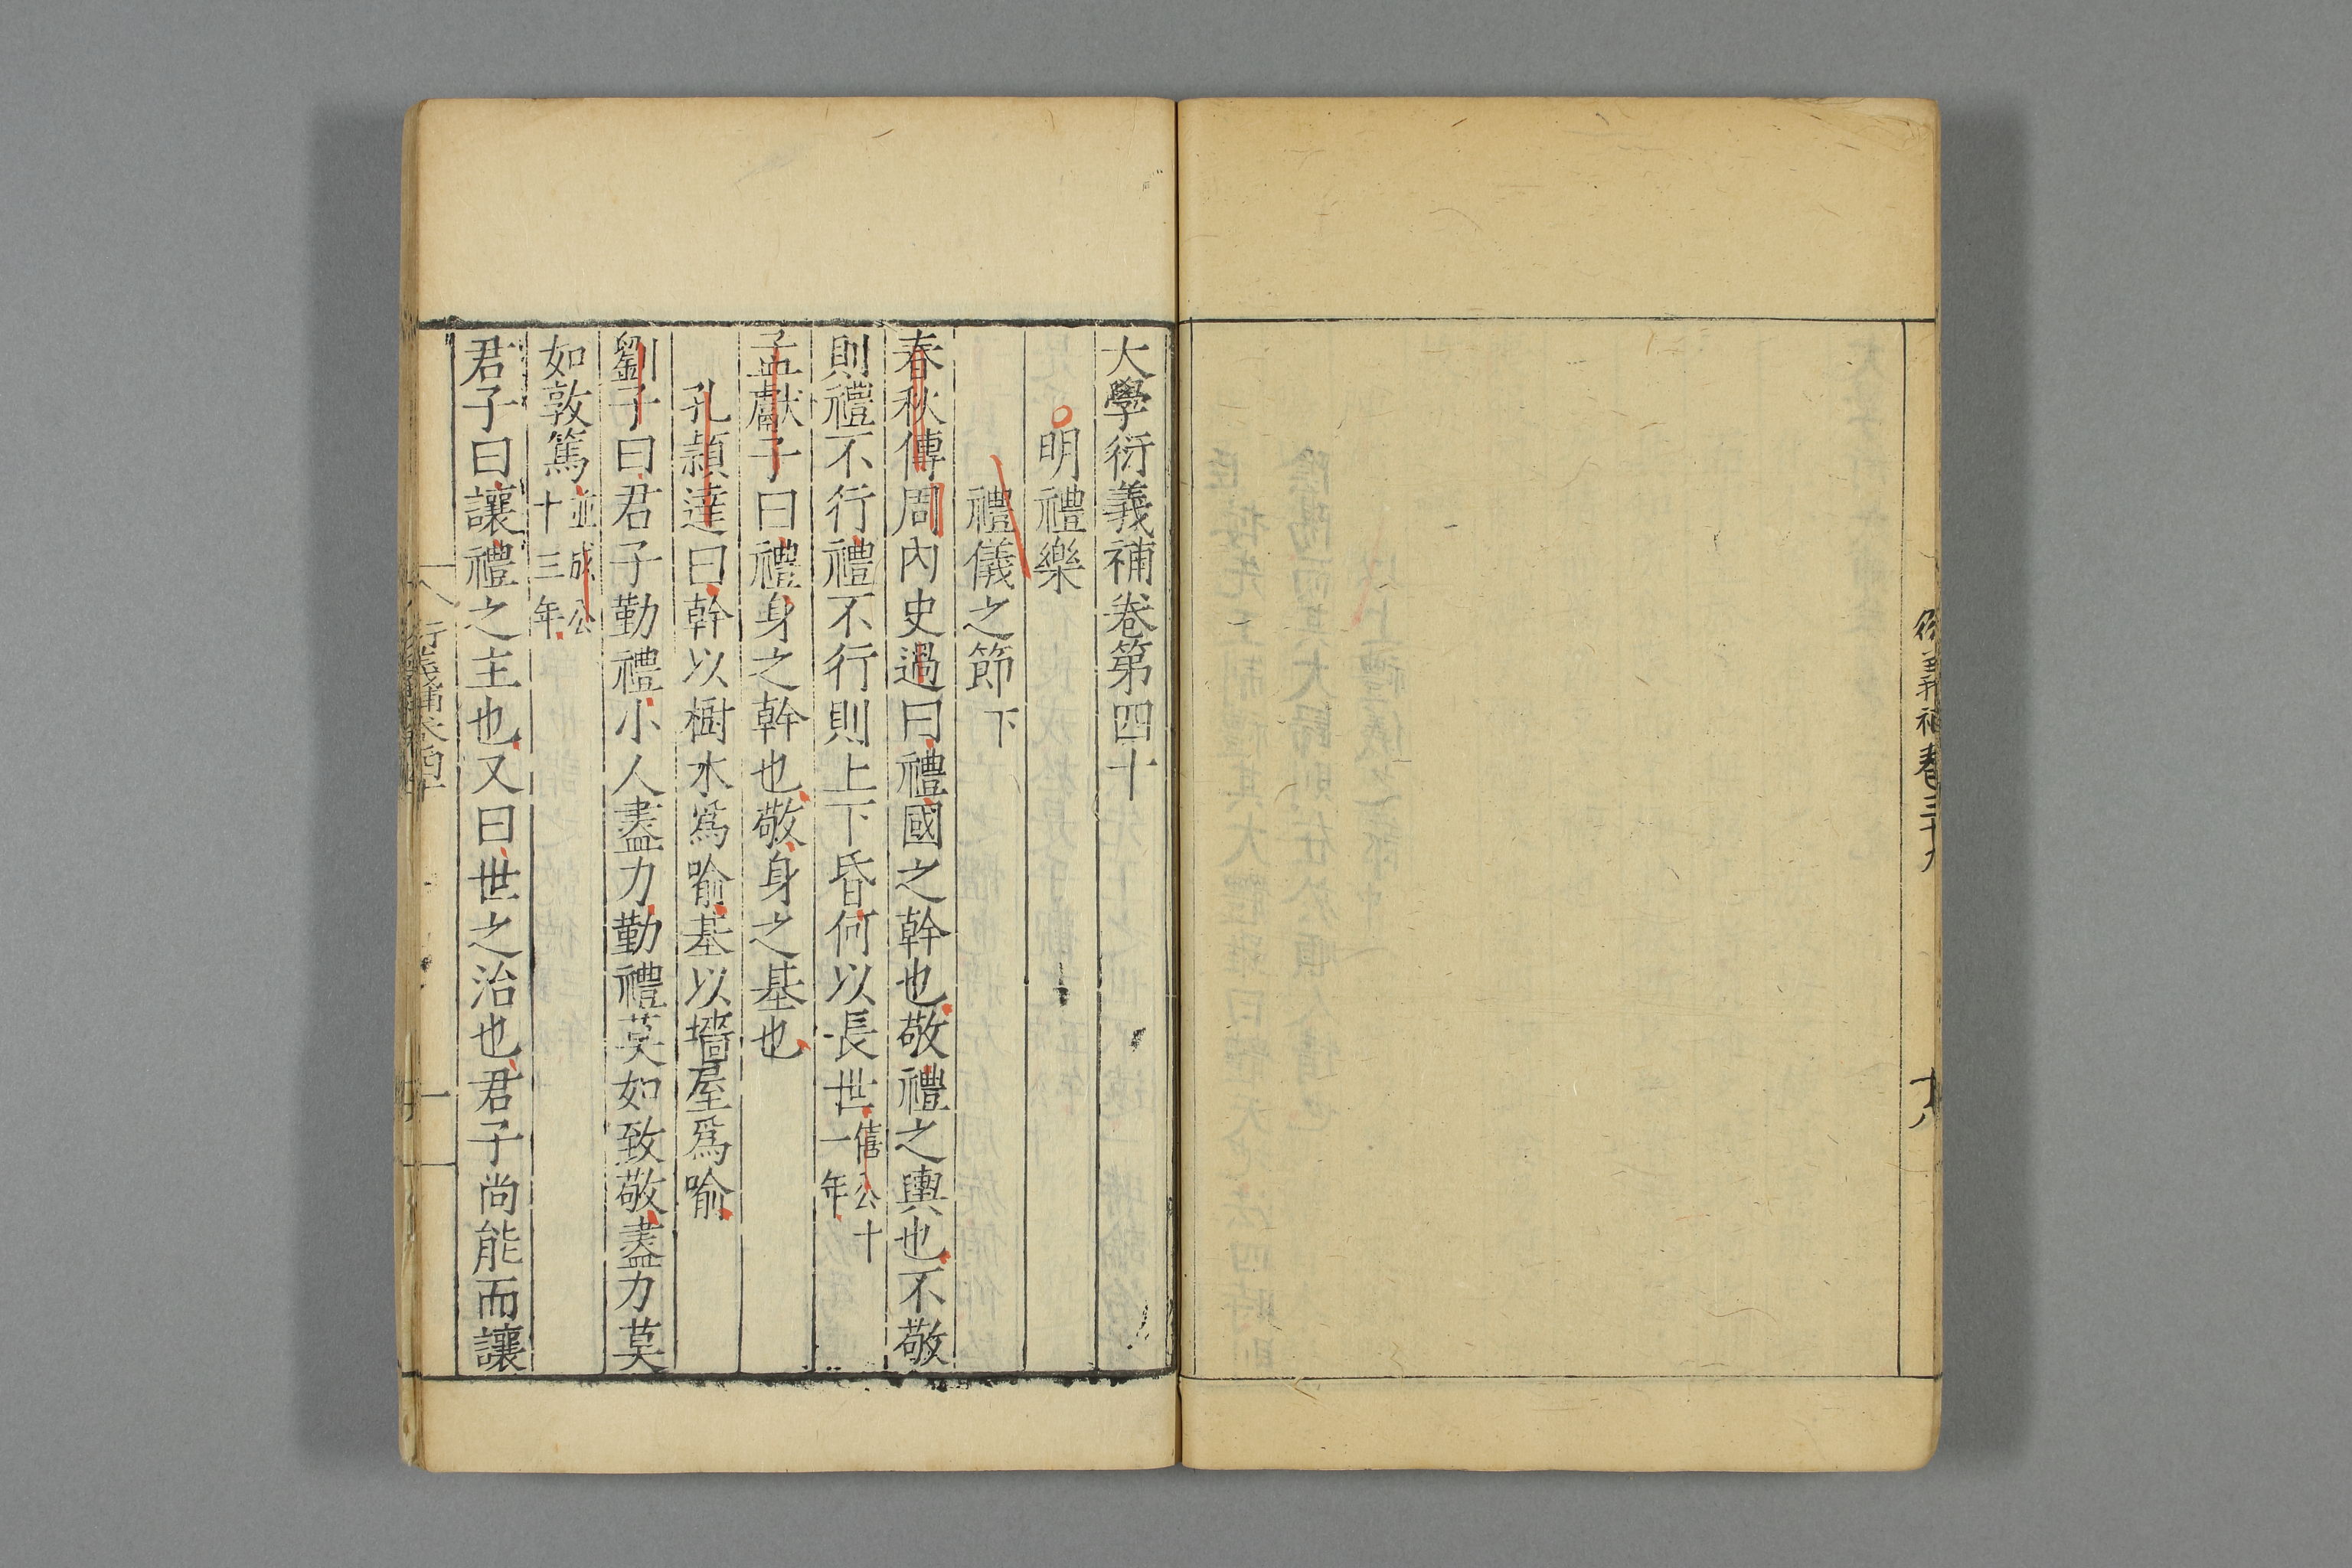 衍義補卷三十九
十八
大學衍義補卷第四十
明禮樂
禮儀之節下
春秋傳周內史過曰禮國之幹也敬禮之輿也不敬
則禮不行禮不行則上下昏何以長世僖公十一年
孟獻子曰禮身之幹也敬身之基也
孔頴達曰幹以樹木爲喻基以墻屋爲喻
劉子曰君子勤禮小人盡力勤禮莫如致敬盡力莫
如敦篤並成公十三年
君子曰讓禮之主也又曰世之治也君子尚能而讓
衍義補卷四十
一